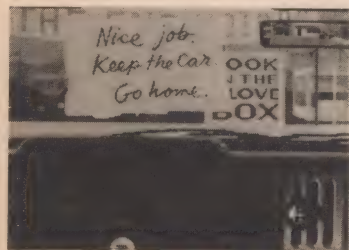 Nice job.
Keep the Car.
Go home.
OOK
THE
LOVE
BOX